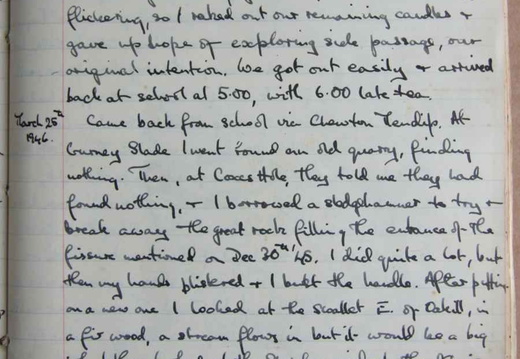 flickering, so I raked out our remaining candles +
gave up hope of exploring side passage, our
original intention. We got out easily + arrived
back at school at 5.00, with 6.00 late tea.
March 25th
1946.
Came back from school via Chewton Mendip. At
Gurney Slade I went round an old quarry, finding
nothing. Then, at Coxs Hole, they told me they had
found nothing, + I borrowed a sledgehammer to try +
break away the great rock filling the entrance of the
fissure mentioned on Dec 30th '45. I did quite a lot, but
then my hands blistered + I bust the handle. After putting
on a new one I looked at the swallet E. of Oakhill, in
a fir wood, a stream flows in but it would be a big